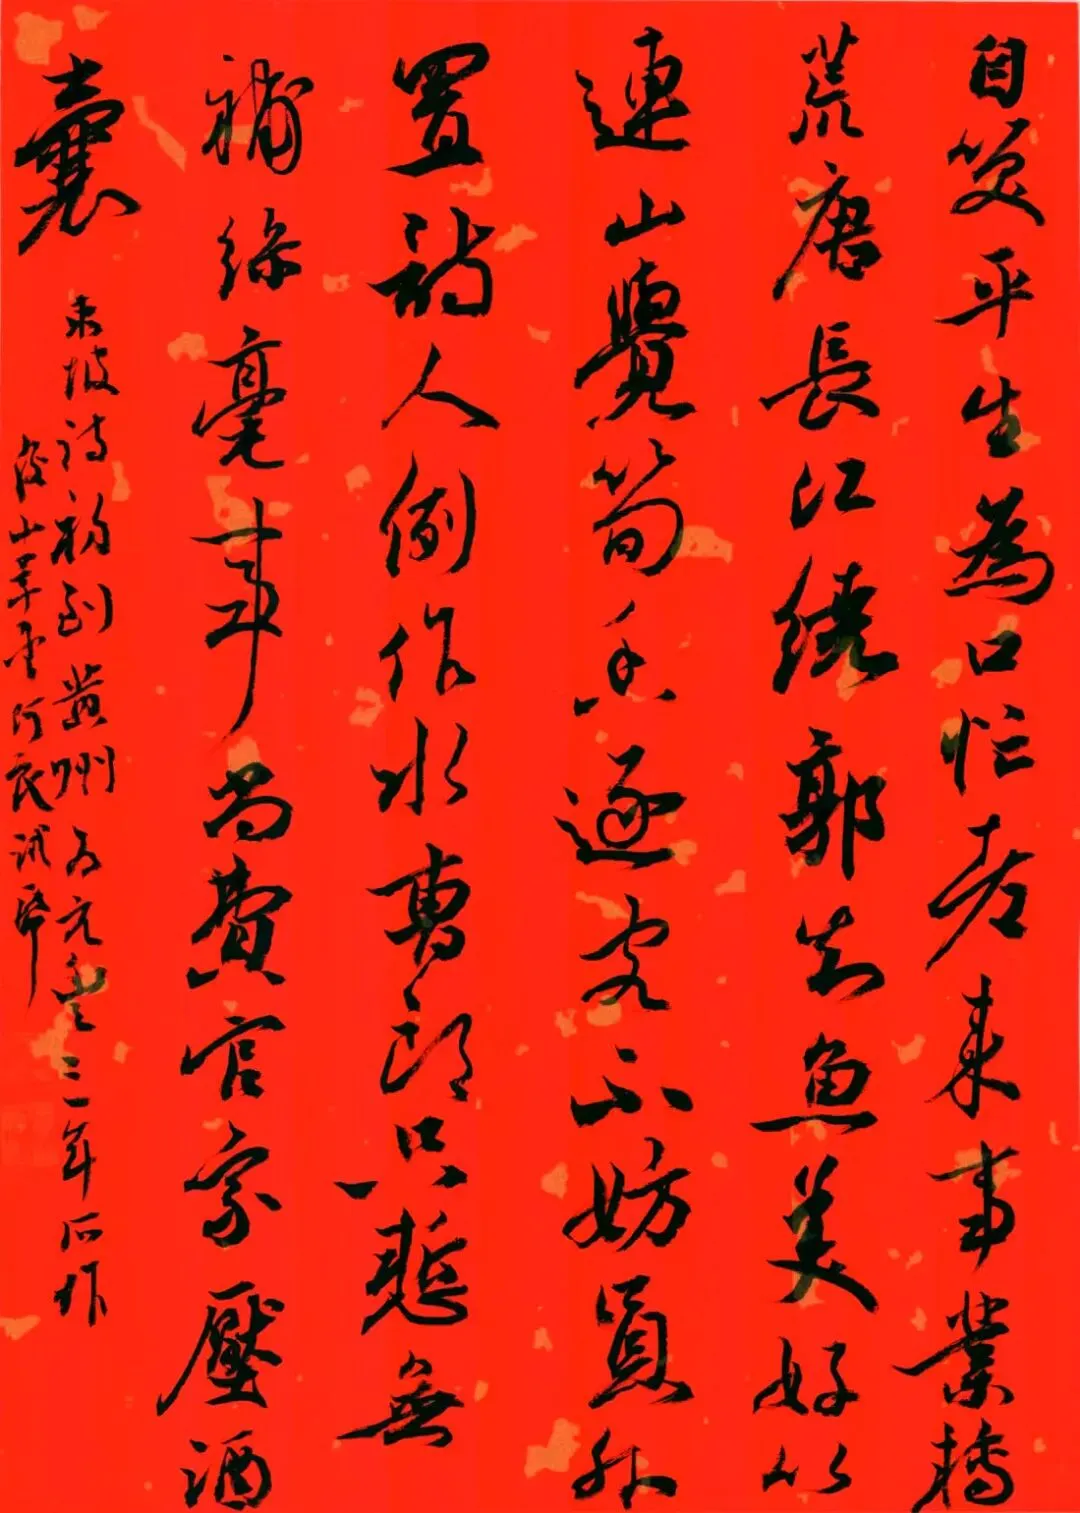 自笑平生為口忙老来事業轉
荒唐長江繞郭知魚美好竹
連山覺筍香逐客不妨員外
置詩人例作水曹郎只慙無
補絲毫事尚費官家壓酒
囊
東坡詩初到黃州為元豐三年所作
後山草堂阿良試筆